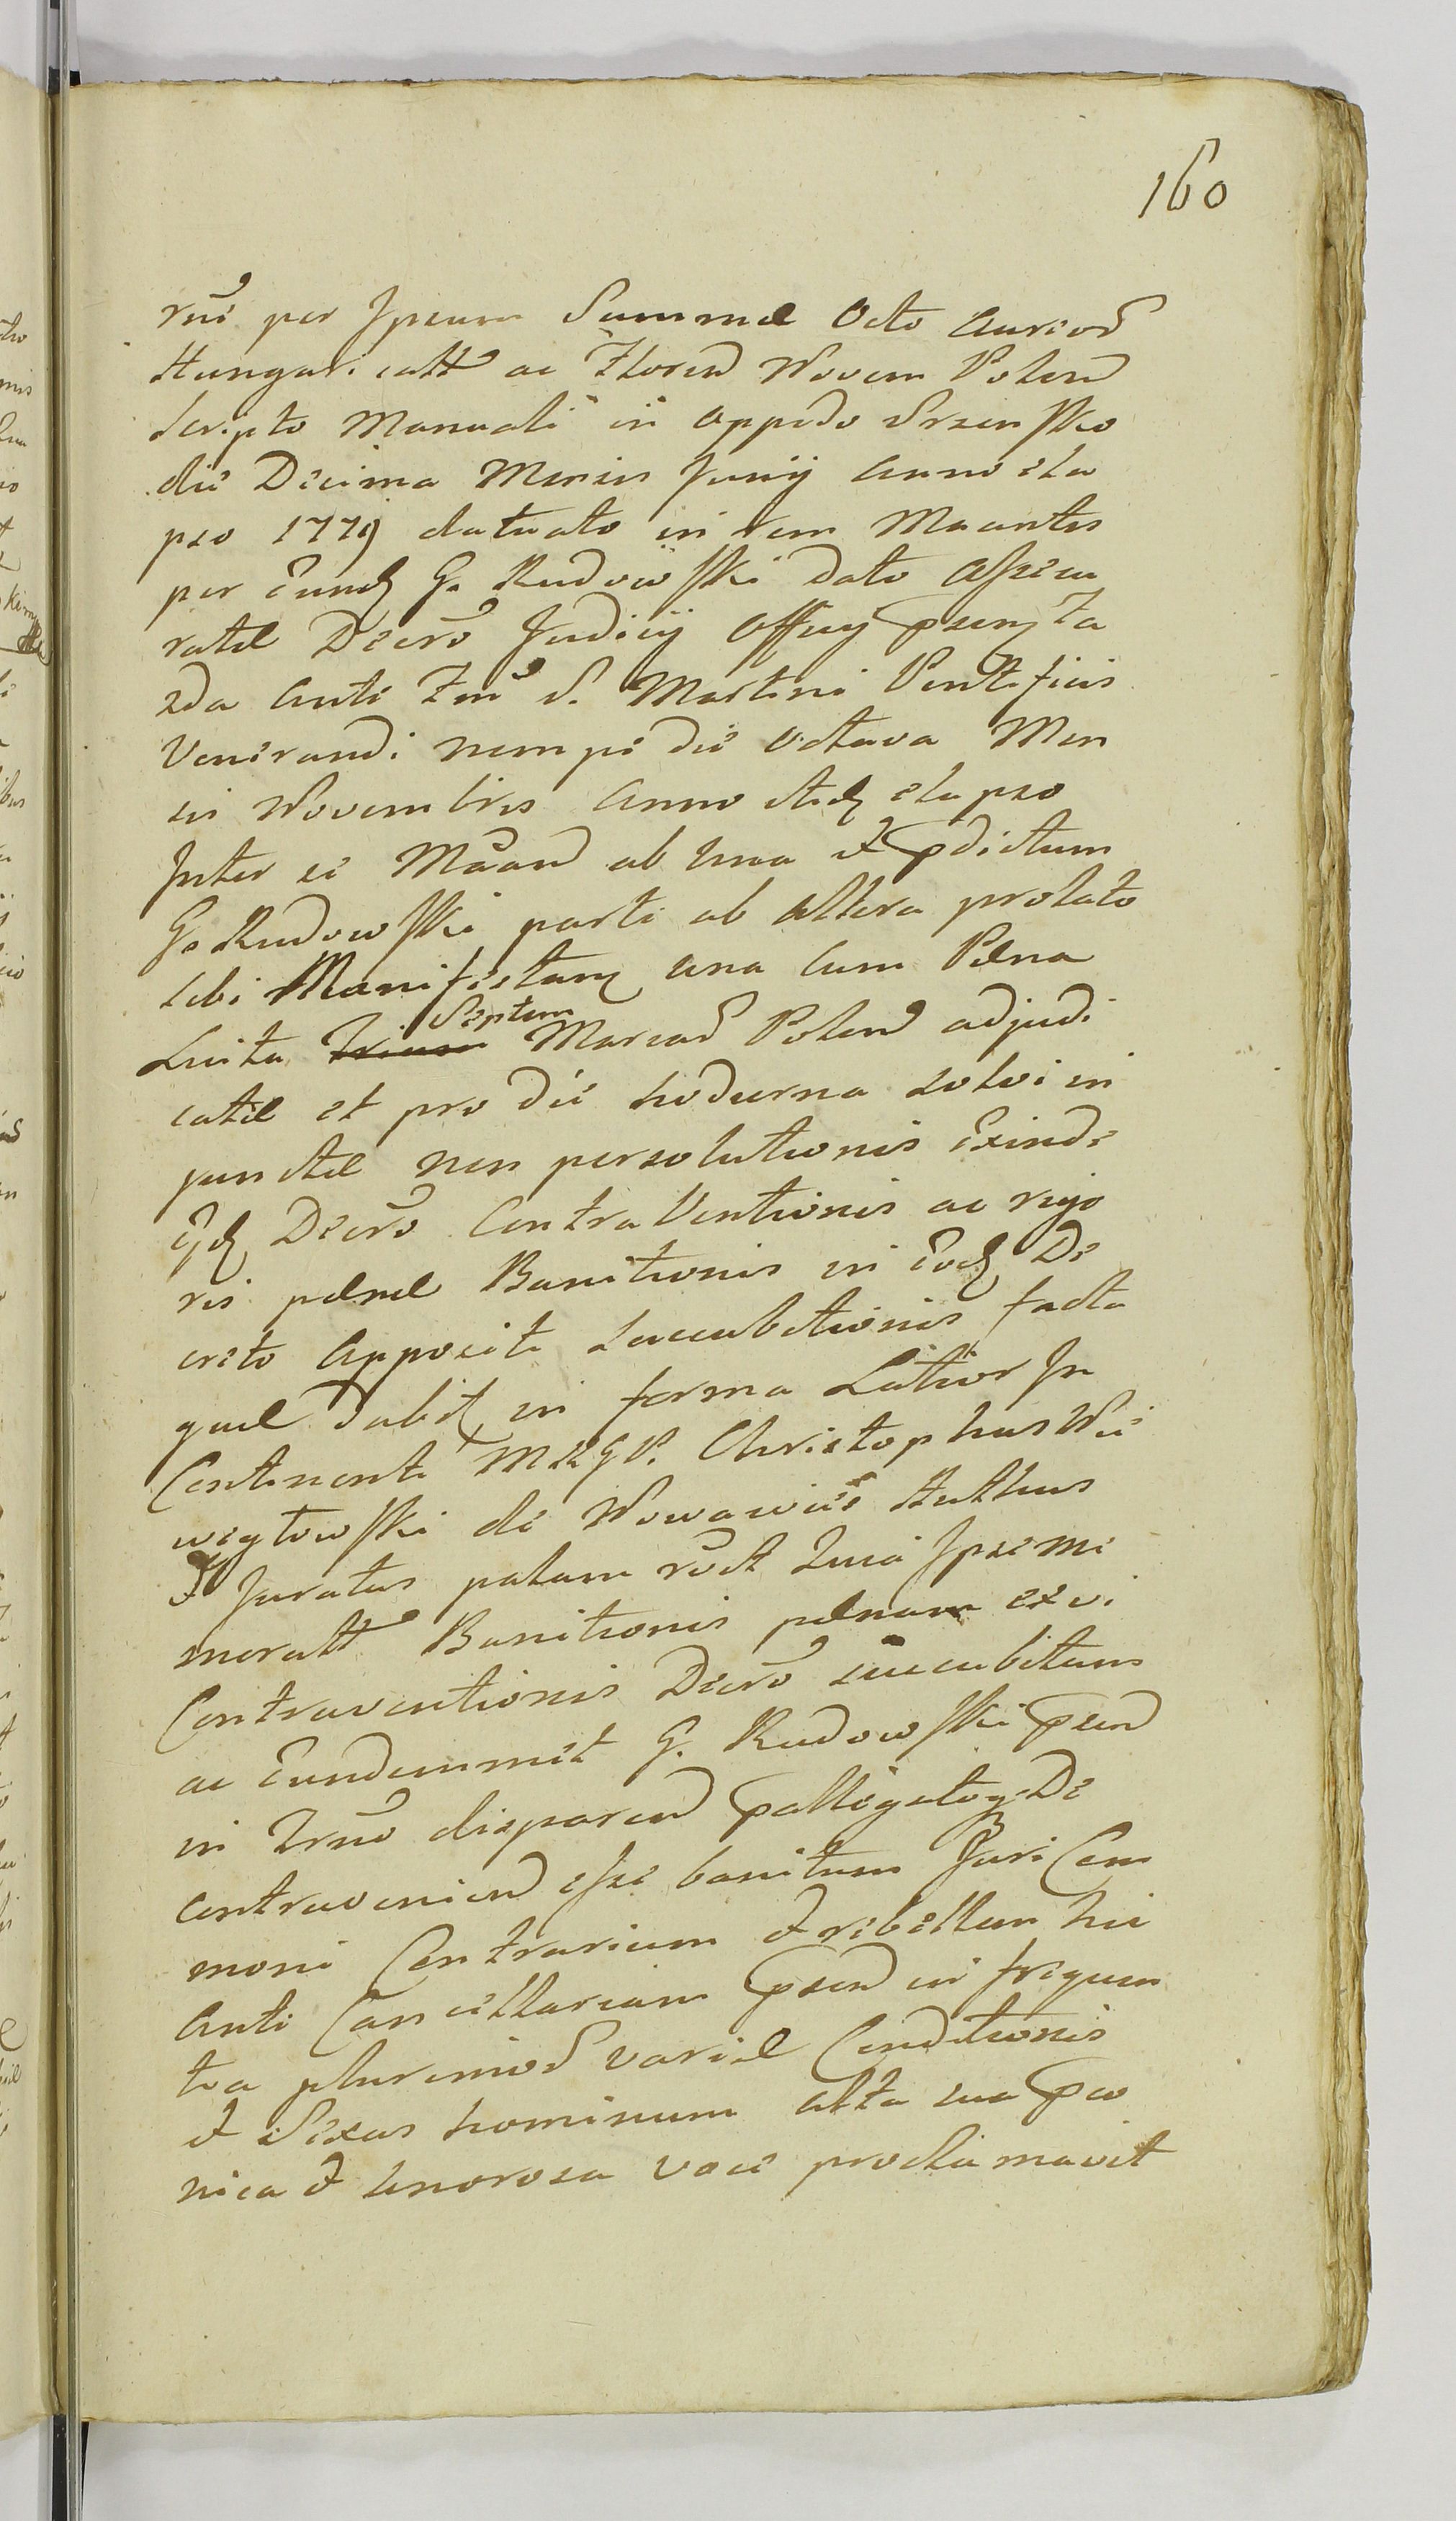 160
rnē per Ipsum Summæ Octo Aureor
Hungaricall ac Floren Novem Polon
Scripto Manuali in Oppido Srzensko
die Decima Mensis Junij Anno ela
pso 1779 datuato in rem Maantis
per Eund G. Rudowski dato Assecu
ratæ Decro Judicij Officij psentis Fa
ria Ante Fm S. Martini Pontificis
Venerandi nempe die Octava Men
sis Novembris Anno itid elapso
Inter se Maand ab una et pdictum
G. Rudowski parte ab altera prolato
sibi Manifestam una cum Pæna
Luita Septem Marcar Polon adjudi
catæ et pro die hodierna solvi in
junctæ non persolutionis Exinde
Ejd Decro Contra Ventionis ac rigo
ris pænæ Banitionis in Eod De
creto Apposite Succubitionis facta
quæ dabit in forma Latior In
Continenti MRGD. Christophus Nie
weglowski de Nowawies Authus
et Juratus palam rūit Quia Ipse me
moratt Banitionis pænam ex vi
Contraventionis Decro succubitum
ac Eundemmet G. Rudowski psen
in Trno disparen palligatog De
contravenien esse banitum Juri Com
moni Contrarium et rebellem hic
Ante Cancellariam psen in frequen
tia plurimor variæ Conditionis
et Sexus hominum alta sua pco
nica et Sonorosa voce proclamavit